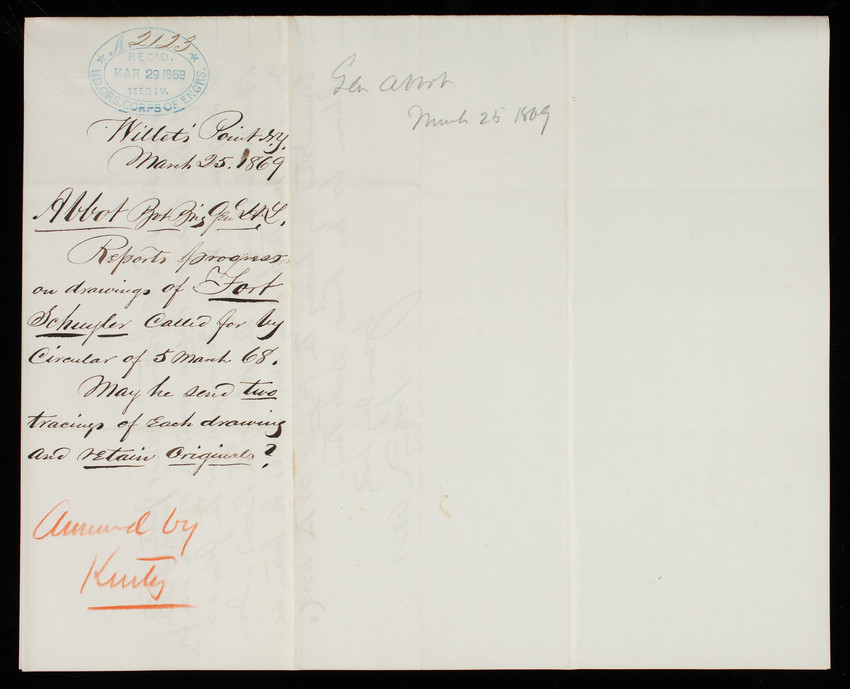 A 2123
REC'D.
MAR 29 1869
HD.QRS. CORPS OF ENGRS.
Willet's Point N.Y.
March 25. 1869
Abbot Bvt Brig Genl H. L.
Reports progress
on drawings of Fort
Schuyler Called for by
Circular of 5 March 68.
May he send two
tracings of Each drawing
and retain Originals?
by
Gen Abbot
March 25 1869